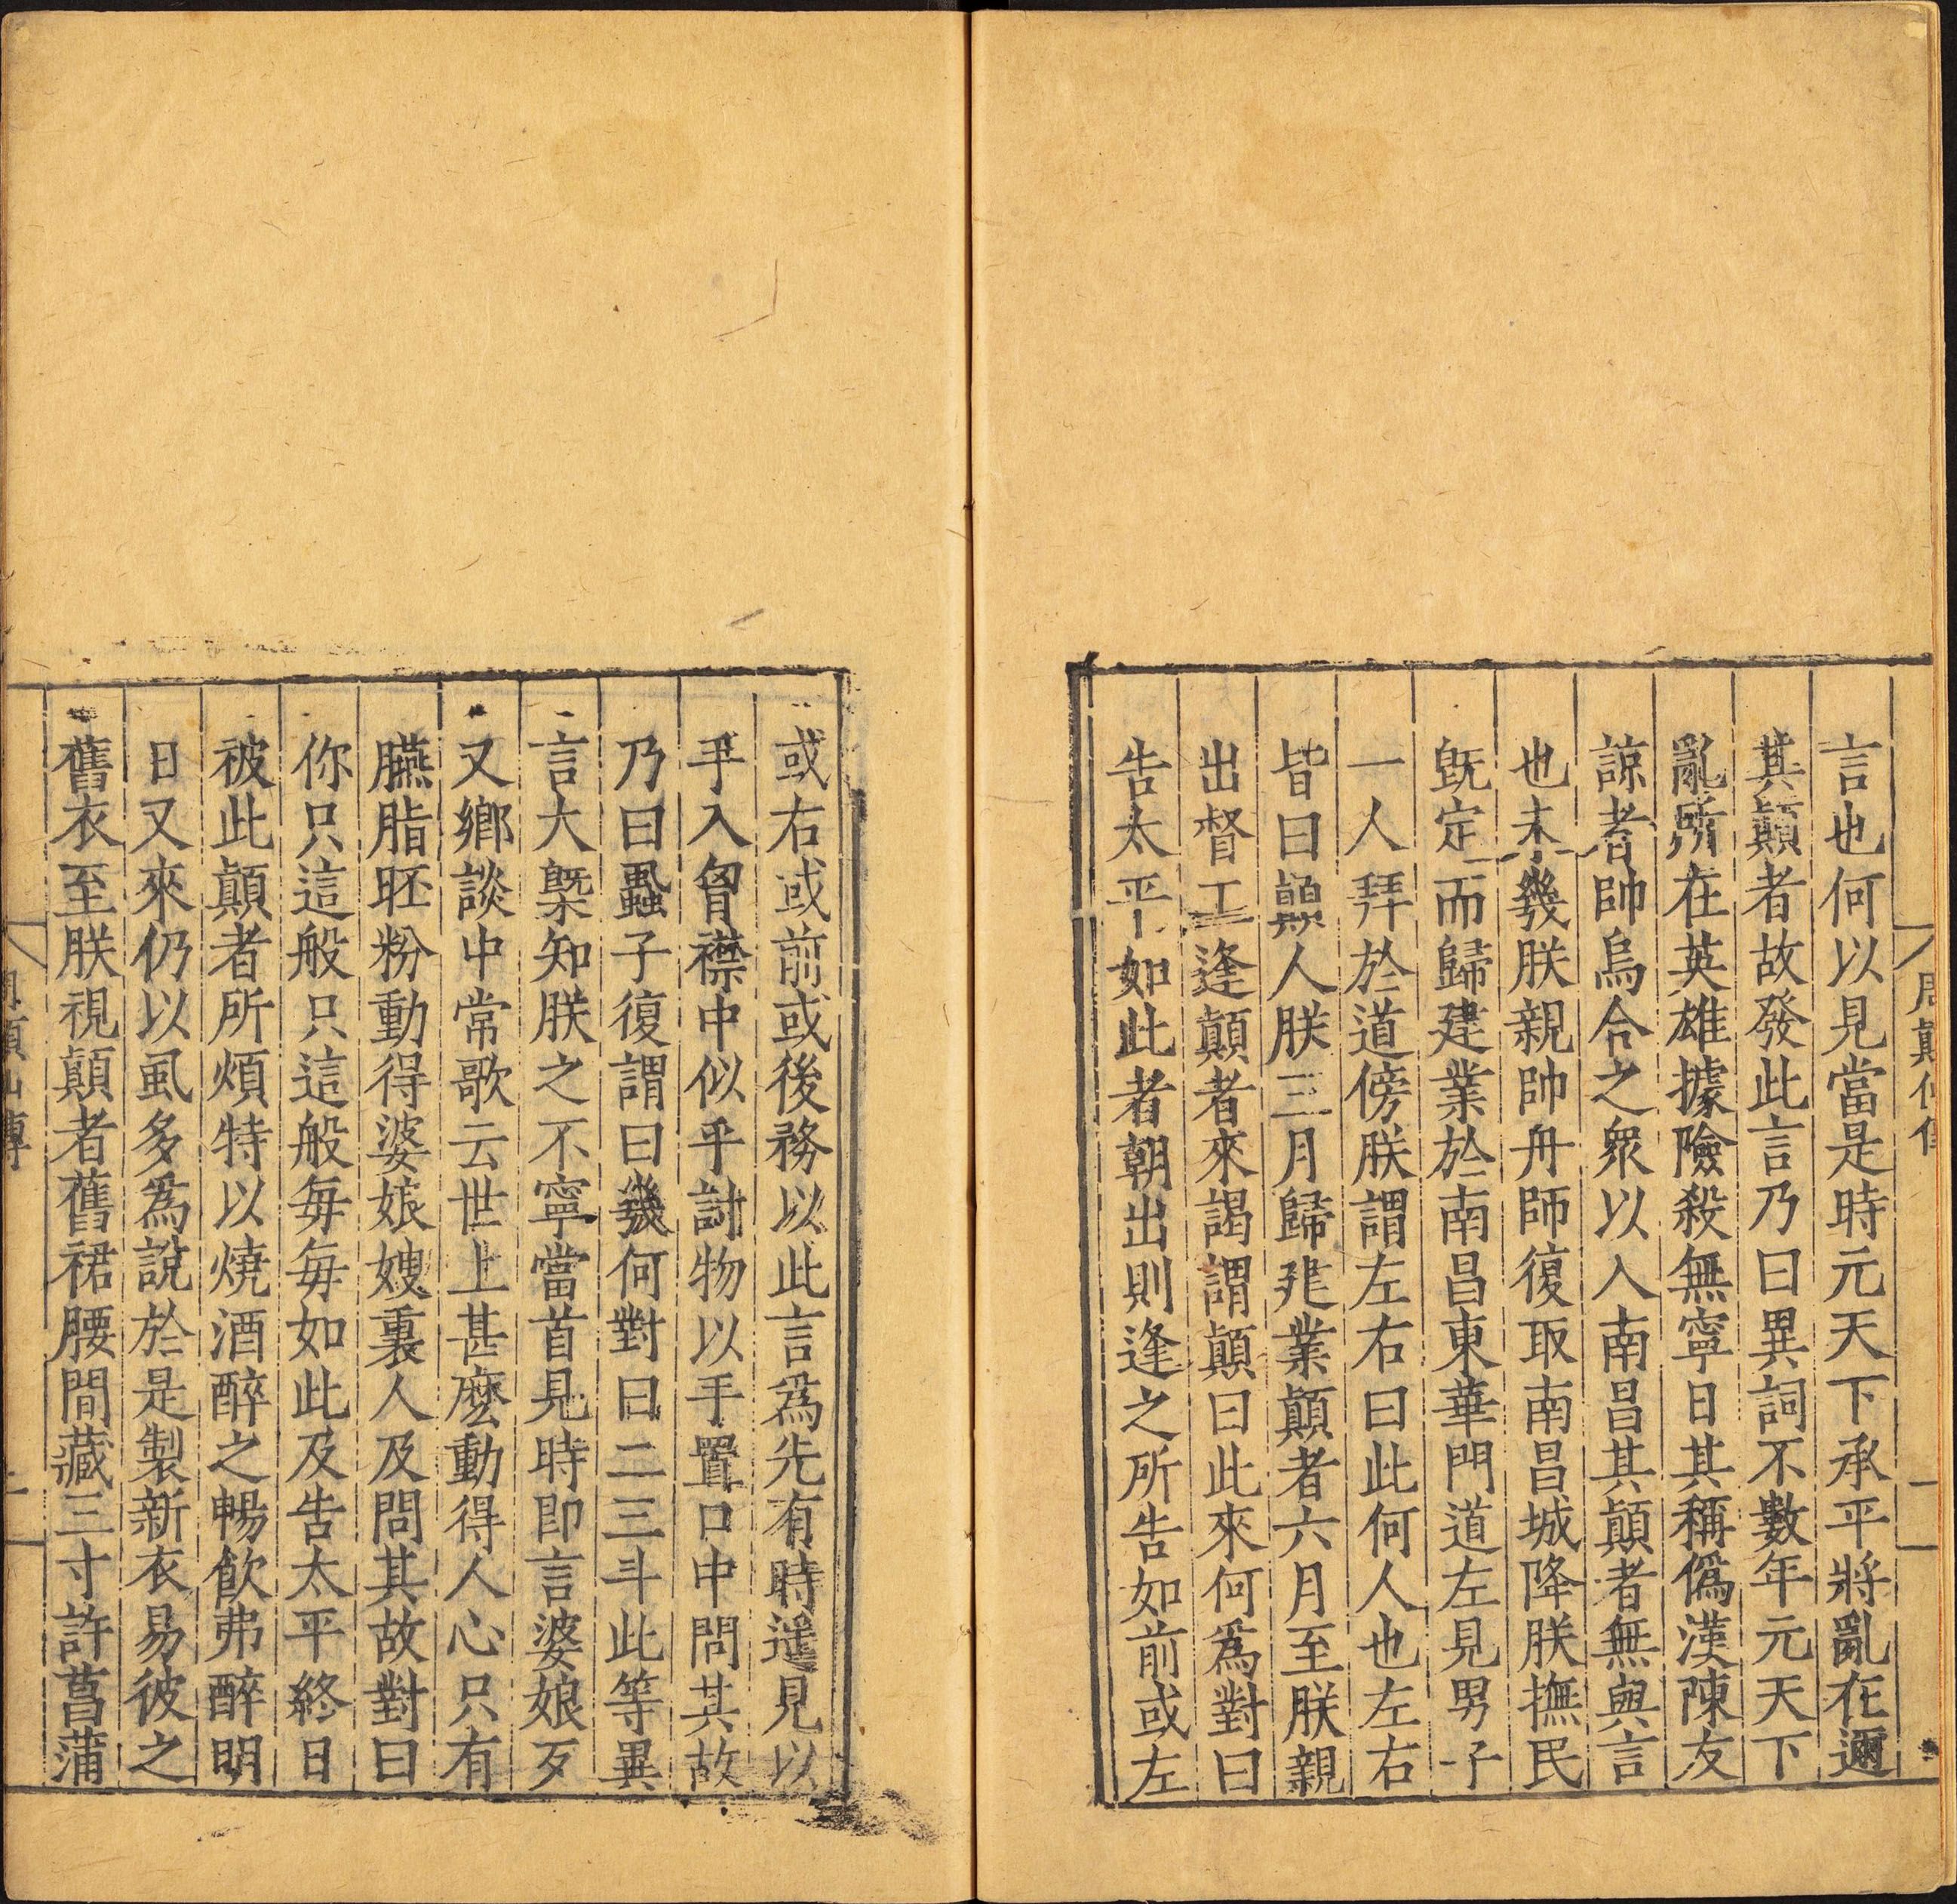 周顛仙傳
二
言也何以見當是時元天下承平將亂在邇
其顛者故發此言乃曰異詞不數年元天下
亂所在英雄據險殺無寧日其稱僞漢陳友
諒者帥烏合之衆以入南昌其顛者無與言
也未幾朕親帥舟師復取南昌城降朕撫民
旣定而歸建業於南昌東華門道左見男子
一人拜於道傍朕謂左右曰此何人也左右
皆曰顛人朕三月歸建業顛者六月至朕親
出督工逢顛者來謁謂顛曰此來何爲對曰
告太平如此者朝出則逢之所告如前或左
或右或前或後務以此言爲先有時遥見以
手入胷襟中似乎討物以手置口中問其故
乃曰蝨子復謂曰幾何對曰二三斗此等異
言大槩知朕之不寧當首見時即言婆娘歹
又鄉談中常歌云世上甚麽動得人心只有
臙脂胚粉動得婆娘嫂裏人及問其故對曰
你只這般只這般每每如此及告太平終日
被此顛者所煩特以燒酒醉之暢飲弗醉明
日又來仍以虱多爲說於是製新衣易彼之
舊衣至朕視顛者舊裙腰間藏三寸許菖蒲
周顛仙傳